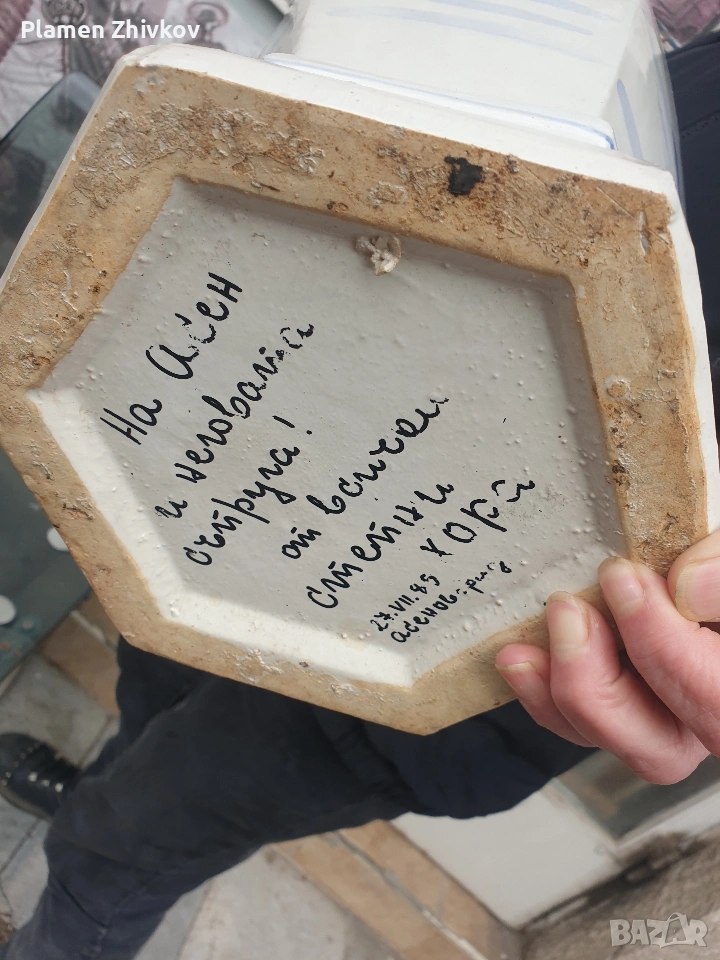 Plamen Zhivkov
На Асен
и неговата
съпруга!
от всички
степни
хора
27.VII.85
BAZAR